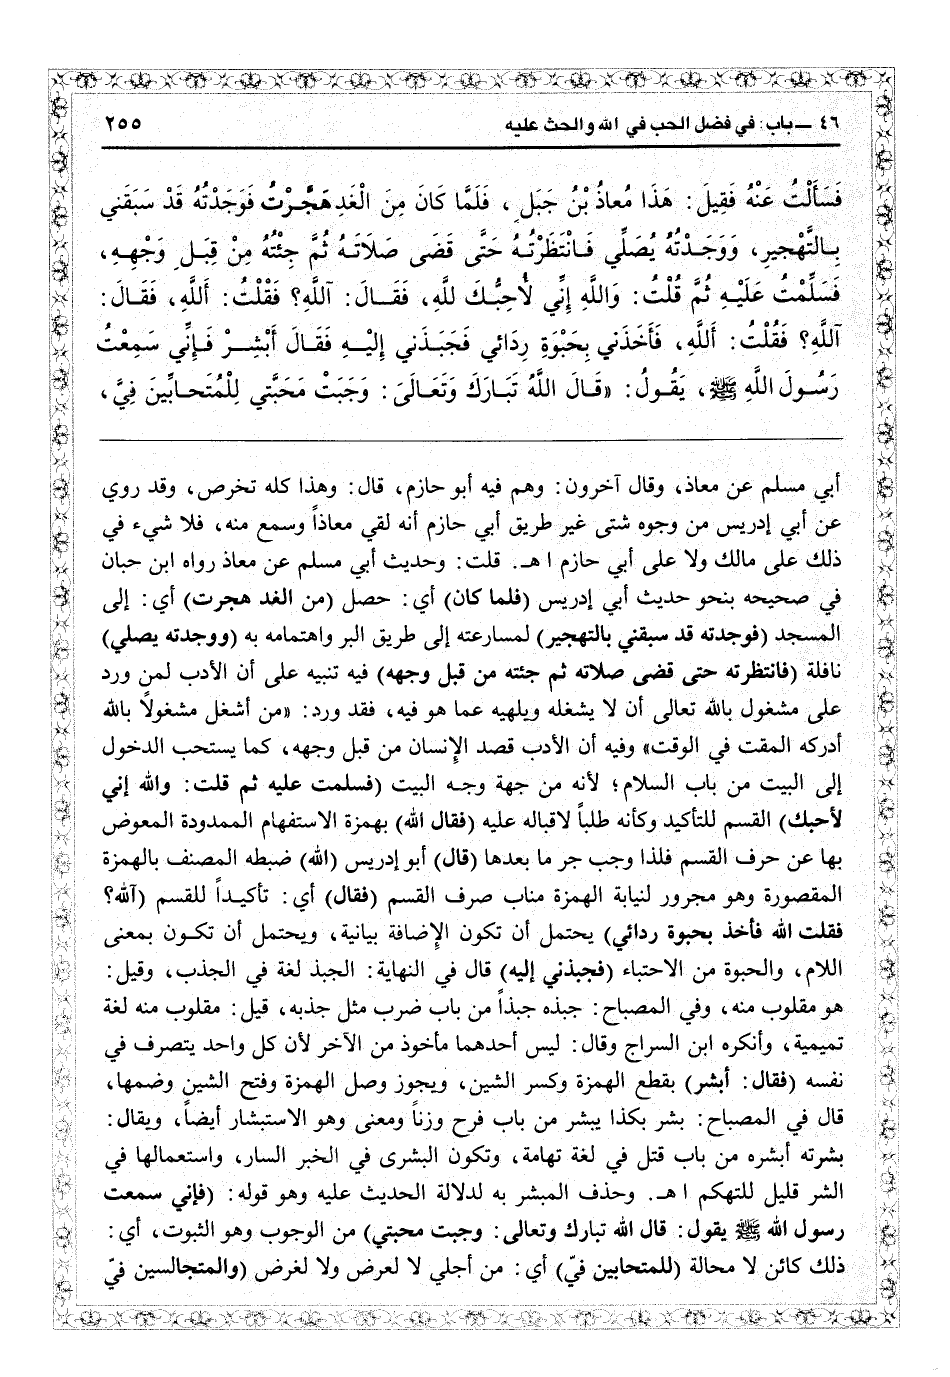 ٤٦ ـ باب: في فضل الحب في الله والحث عليه ٢٥٥
فَسَأَلْتُ عَنْهُ فَقِيلَ: هَذَا مُعاذُ بْنُ جَبَلٍ، فَلَمَّا كَانَ مِنَ الْغَدِ هَجَّرْتُ فَوَجَدْتُهُ قَدْ سَبَقَني
بِالتَّهْجِيرِ، وَوَجَدْتُهُ يُصَلِّي فَانْتَظَرْتُهُ حَتَّى قَضَى صَلَاتَهُ ثُمَّ جِئْتُهُ مِنْ قِبَلِ وَجْهِهِ،
فَسَلَّمْتُ عَلَيْهِ ثُمَّ قُلْتُ: وَاللَّهِ إِنِّي لَأُحِبُّكَ للَّهِ، فَقَالَ: آللَّهِ؟ فَقُلْتُ: أَللَّهِ، فَقَالَ:
آللَّهِ؟ فَقُلْتُ: أَللَّهِ، فَأَخَذَني بِحَبْوَةِ رِدَائي فَجَبَذَني إِلَيْهِ فَقَالَ أَبْشِرْ فَإِنِّي سَمِعْتُ
رَسُولَ اللَّهِ ﷺ، يَقُولُ: «قَالَ اللَّهُ تَبَارَكَ وَتَعَالَىَ: وَجَبَتْ مَحَبَّتي لِلْمُتَحابِّينَ فِيَّ،
أبي مسلم عن معاذ، وقال آخرون: وهم فيه أبو حازم، قال: وهذا كله تخرص، وقد روي
عن أبي إدريس من وجوه شتى غير طريق أبي حازم أنه لقي معاذاً وسمع منه، فلا شيء في
ذلك على مالك ولا على أبي حازم ا هـ. قلت: وحديث أبي مسلم عن معاذ رواه ابن حبان
في صحيحه بنحو حديث أبي إدريس (فلما كان) أي: حصل (من الغد هجرت) أي: إلى
المسجد (فوجدته قد سبقني بالتهجير) لمسارعته إلى طريق البر واهتمامه به (ووجدته يصلي)
نافلة (فانتظرته حتى قضى صلاته ثم جئته من قبل وجهه) فيه تنبيه على أن الأدب لمن ورد
على مشغول بالله تعالى أن لا يشغله ويلهيه عما هو فيه، فقد ورد: «من أشغل مشغولاً بالله
أدركه المقت في الوقت» وفيه أن الأدب قصد الإنسان من قبل وجهه، كما يستحب الدخول
إلى البيت من باب السلام؛ لأنه من جهة وجه البيت (فسلمت عليه ثم قلت: والله إني
لأحبك) القسم للتأكيد وكأنه طلباً لاقباله عليه (فقال الله) بهمزة الاستفهام الممدودة المعوض
بها عن حرف القسم فلذا وجب جر ما بعدها (قال) أبو إدريس (الله) ضبطه المصنف بالهمزة
المقصورة وهو مجرور لنيابة الهمزة مناب صرف القسم (فقال) أي: تأكيداً للقسم (آلله؟
فقلت الله فأخذ بحبوة ردائي) يحتمل أن تكون الإضافة بيانية، ويحتمل أن تكون بمعنى
اللام، والحبوة من الاحتباء (فجبذني إليه) قال في النهاية: الجبذ لغة في الجذب، وقيل:
هو مقلوب منه، وفي المصباح: جبذه جبذاً من باب ضرب مثل جذبه، قيل: مقلوب منه لغة
تميمية، وأنكره ابن السراج وقال: ليس أحدهما مأخوذ من الآخر لأن كل واحد يتصرف في
نفسه (فقال: أبشر) بقطع الهمزة وكسر الشين، ويجوز وصل الهمزة وفتح الشين وضمها،
قال في المصباح: بشر بكذا يبشر من باب فرح وزناً ومعنى وهو الاستبشار أيضاً، ويقال:
بشرته أبشره من باب قتل في لغة تهامة، وتكون البشرى في الخبر السار، واستعمالها في
الشر قليل للتهكم ا هـ. وحذف المبشر به لدلالة الحديث عليه وهو قوله: (فإني سمعت
رسول الله ﷺ يقول: قال الله تبارك وتعالى: وجبت محبتي) من الوجوب وهو الثبوت، أي:
ذلك كائن لا محالة (للمتحابين فيّ) أي: من أجلي لا لعرض ولا لغرض (والمتجالسين فيّ